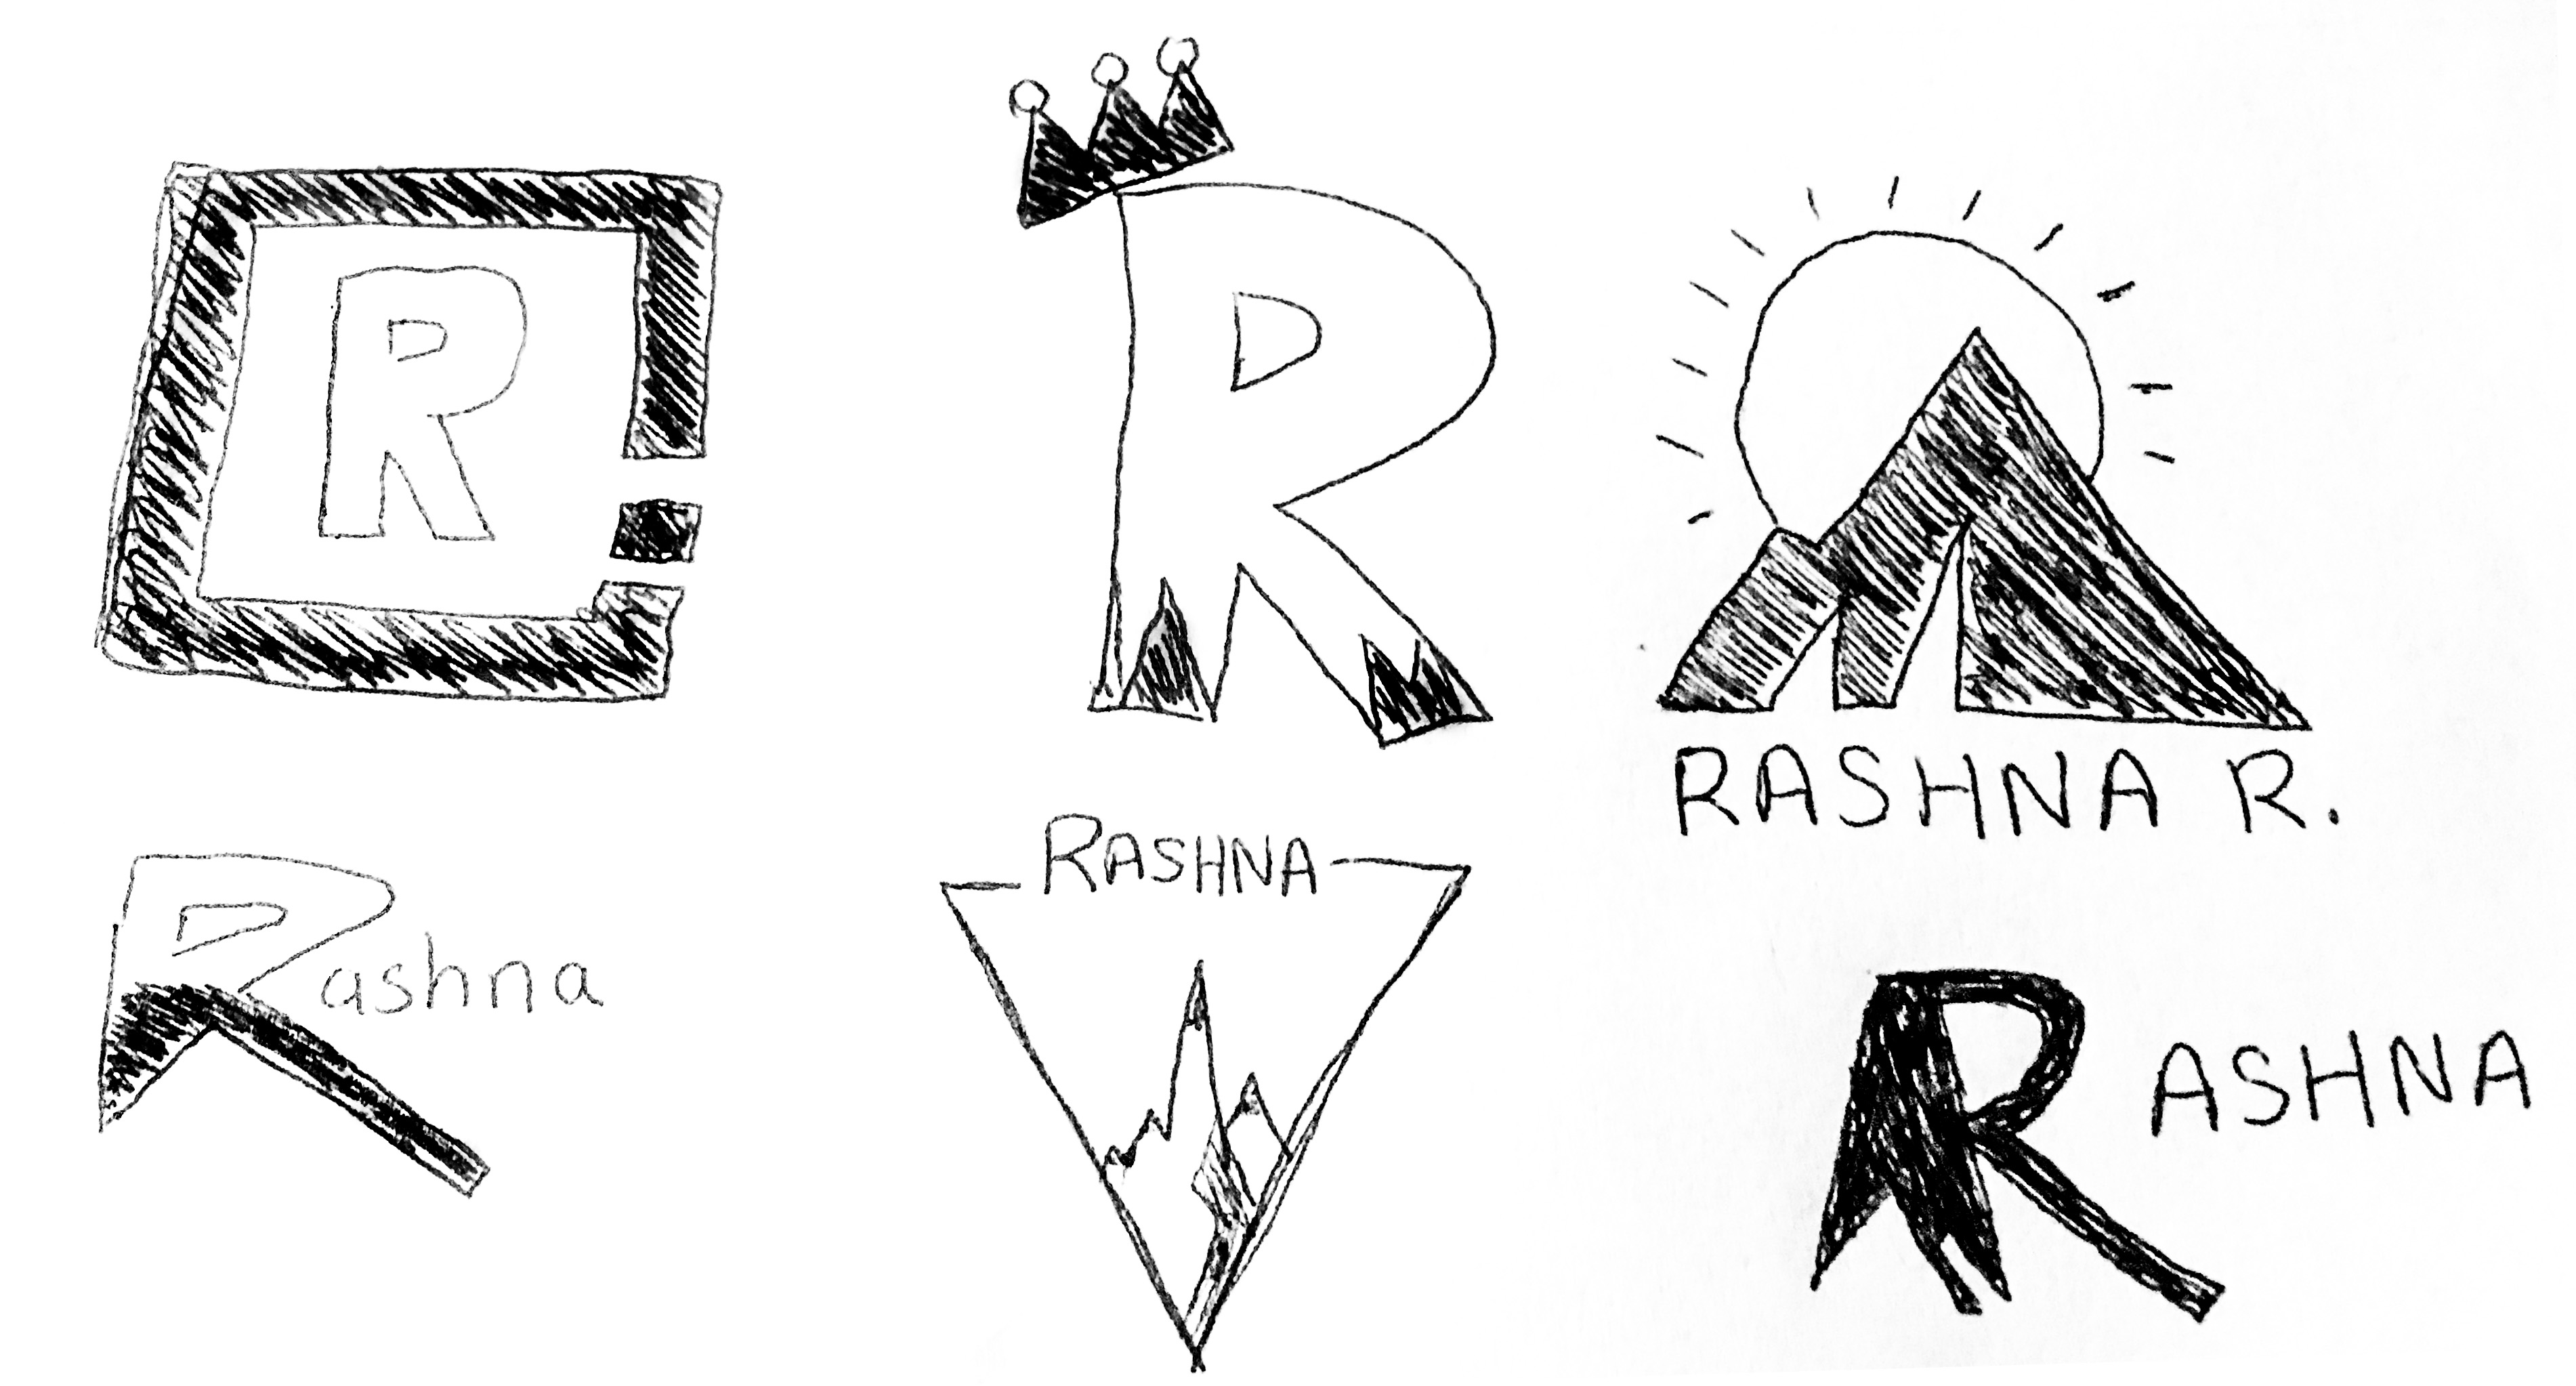 R
R
RASHNA R.
Rashna
RASHNA
RASHNA